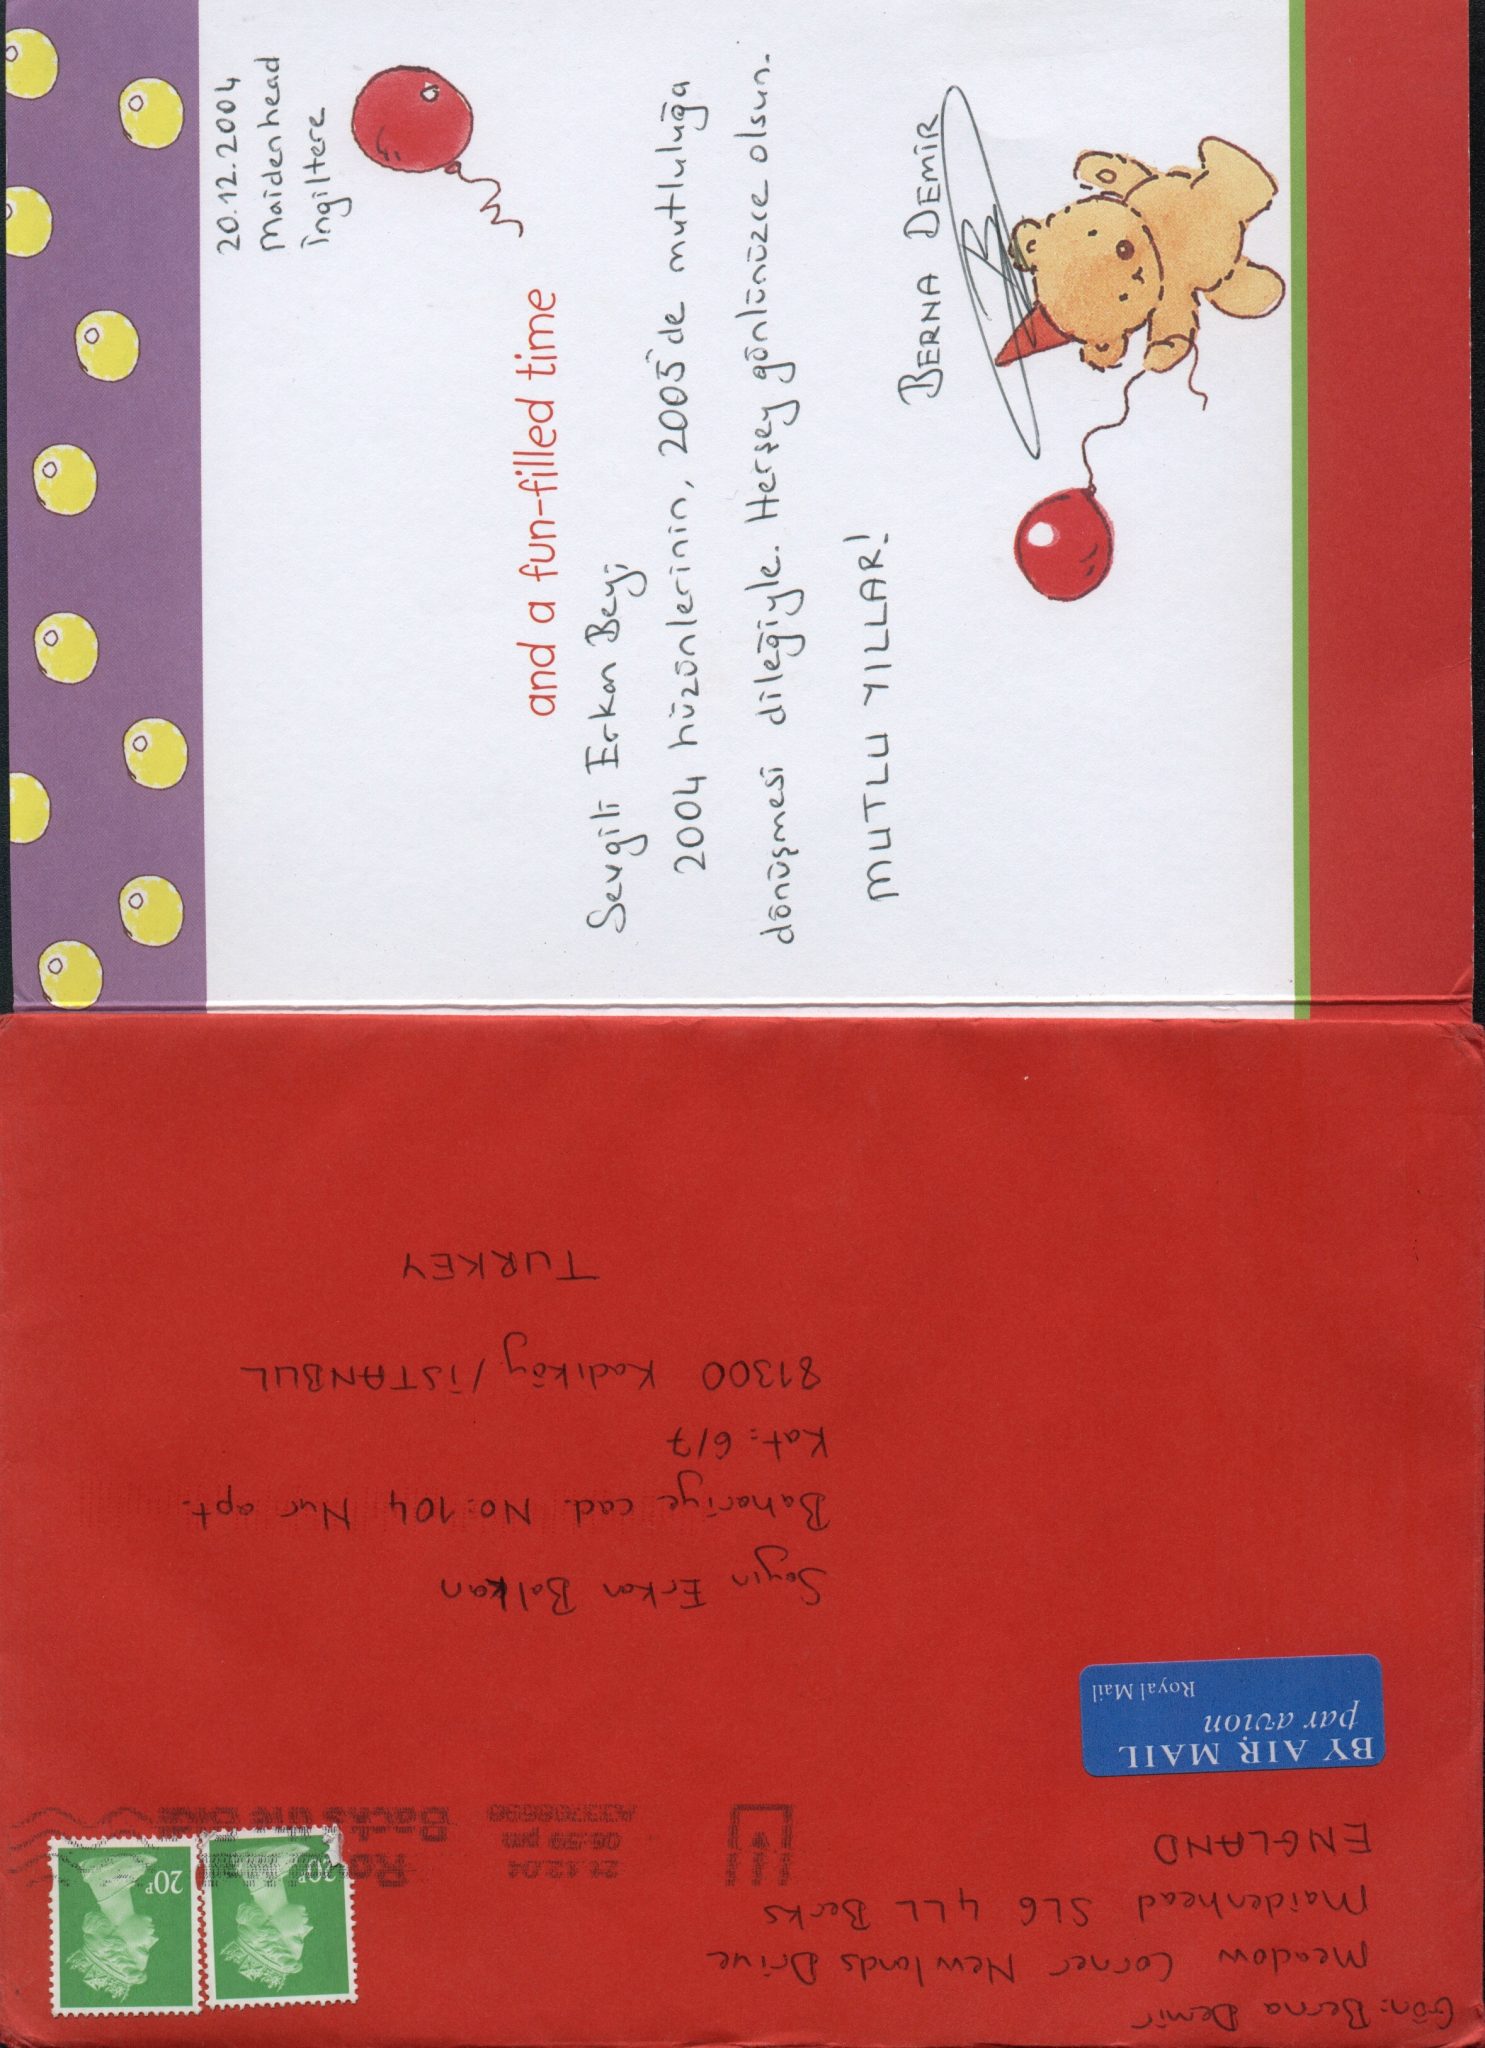 20.12.2004
Maidenhead
İngiltere
and a fun-filled time
Sevgili Erkan Bey;
2004 hüzünlerinin, 2005'de mutluluğa
dönüşmesi dileğiyle. Herşey gönlünüzce olsun.
MUTLU YILLAR!
BERNA DEMİR
Gön: Berna Demir
Meadow Corner Newlands Drive
Maidenhead SL6 4LL Berks
ENGLAND
20P
20P
Royal
21.12.04
06:39 pm
A33708690
BY AIR MAIL
par avion
Royal Mail
Sayın Erkan Balkan
Bahariye cad. No:104 Nur apt.
Kat: 6/7
81300 Kadıköy/İSTANBUL
TURKEY